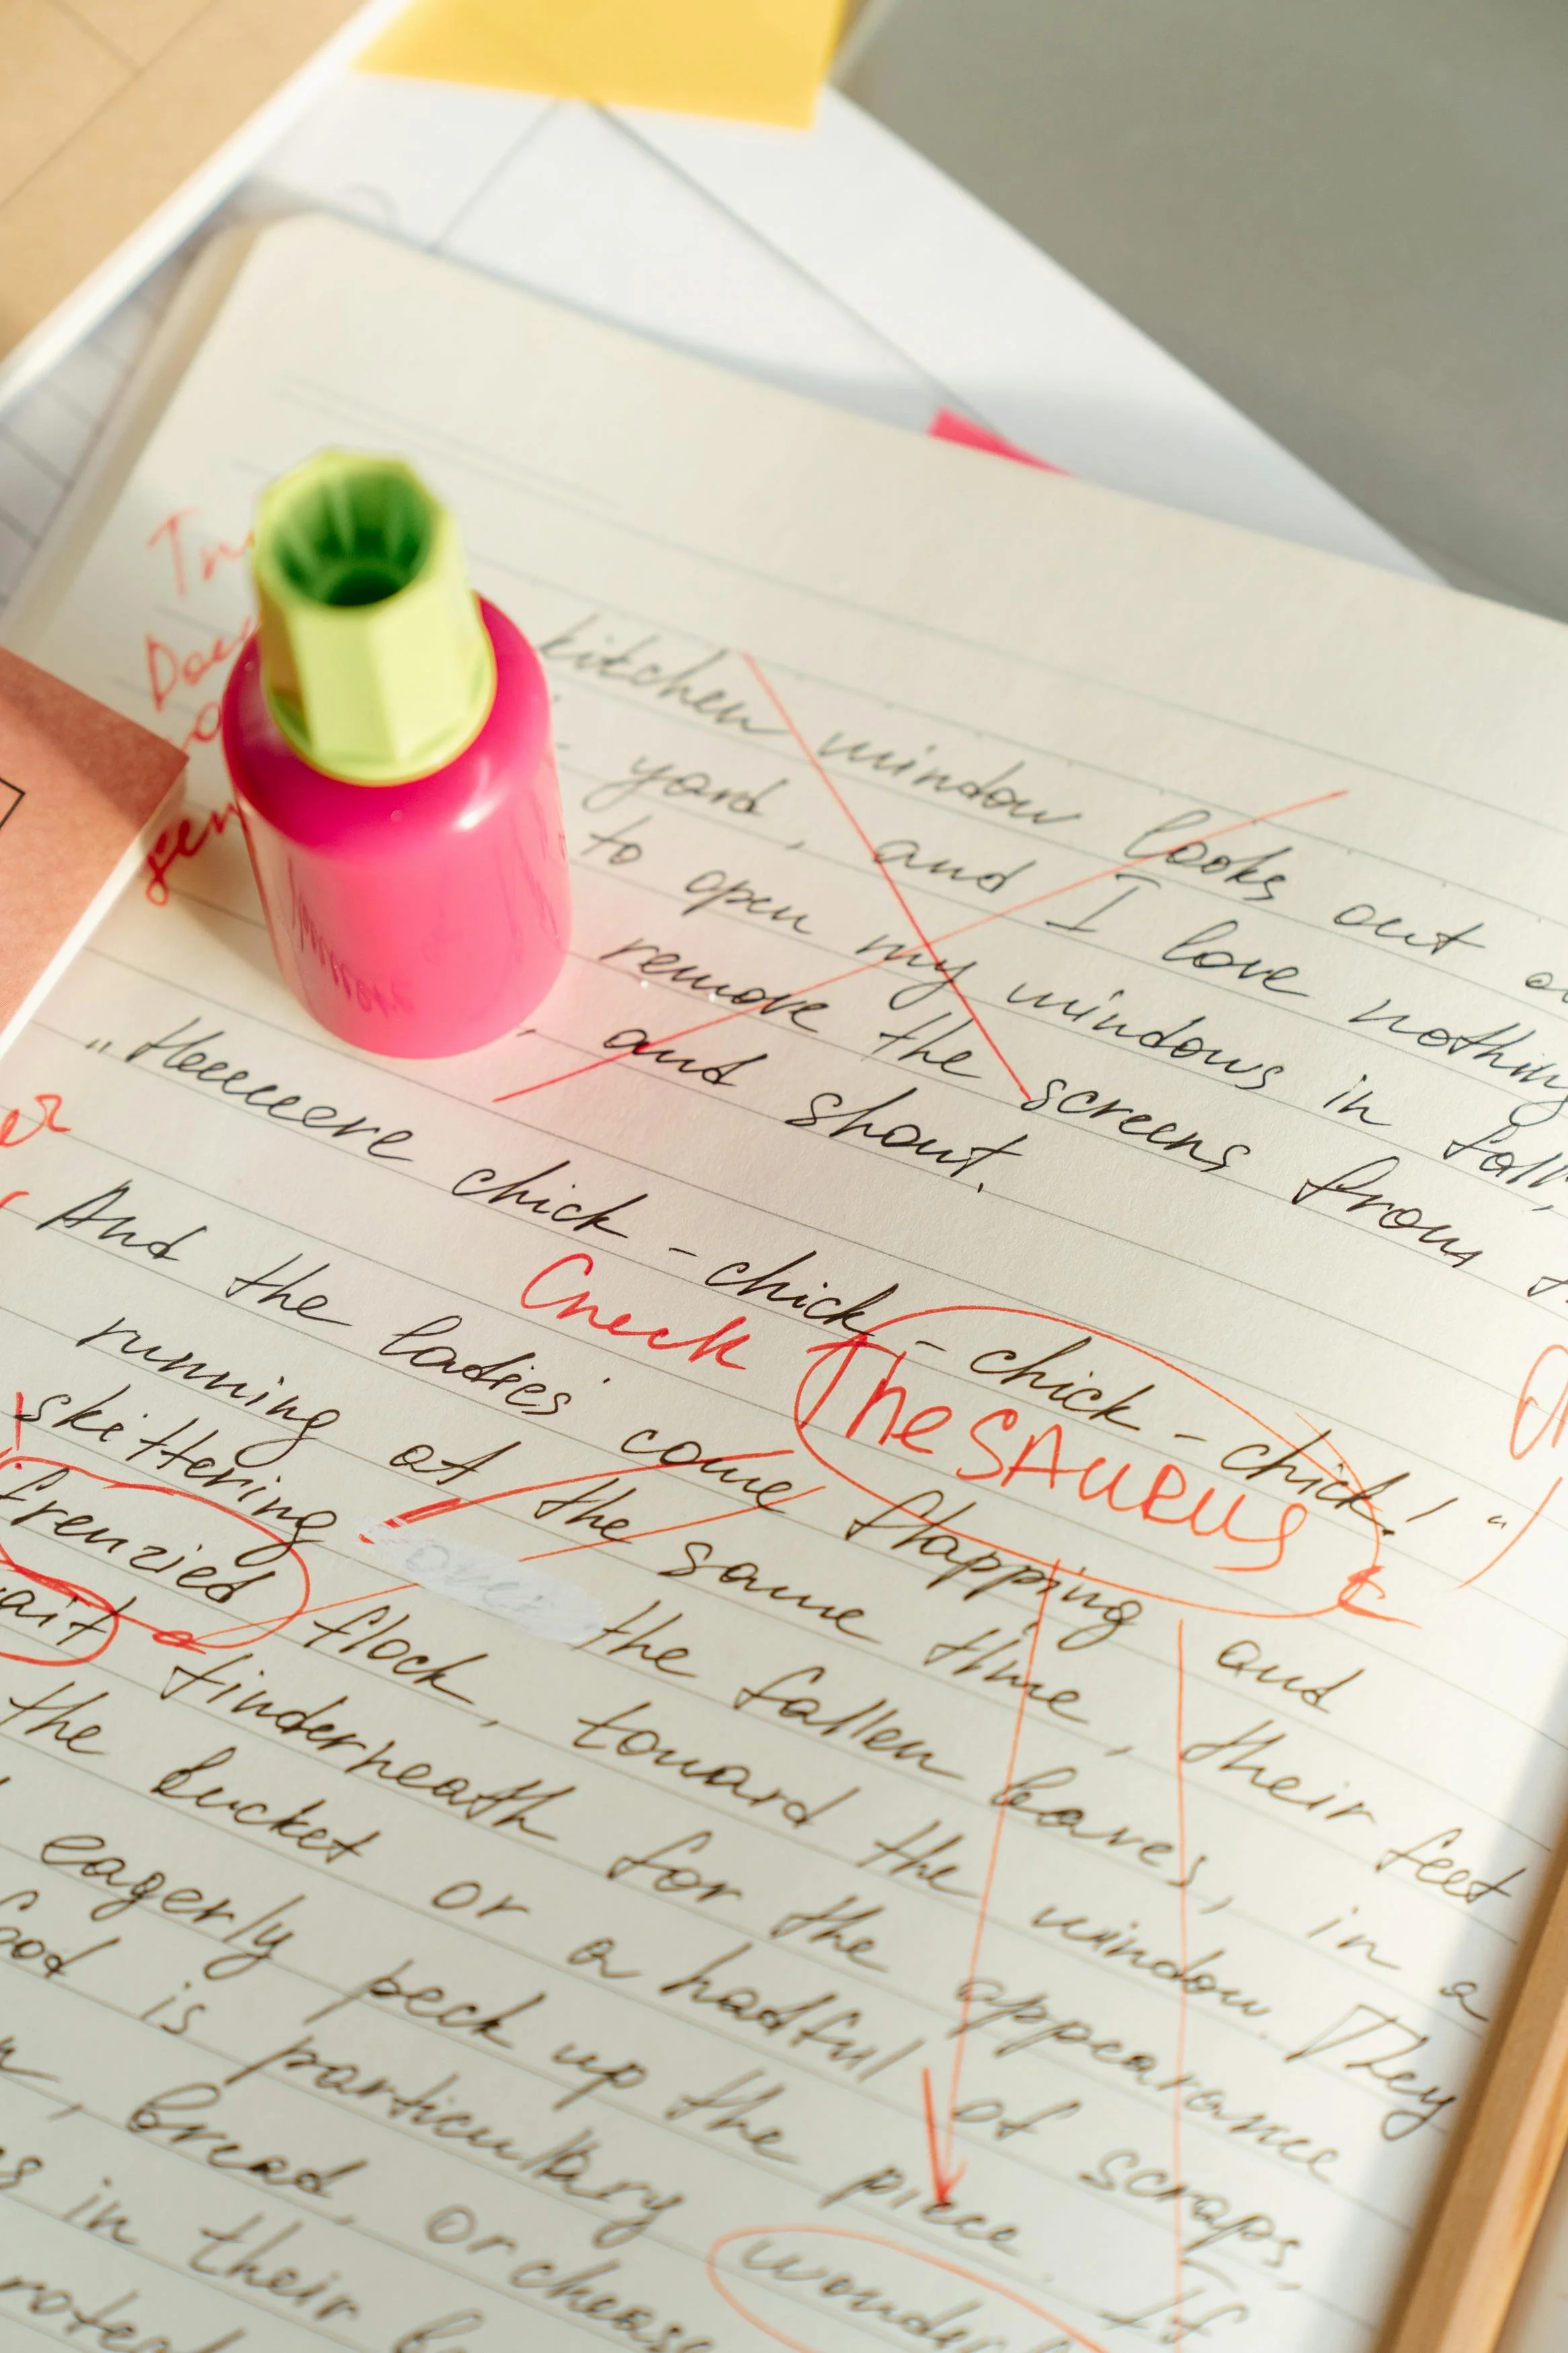 kitchen window looks out
yard, and I love nothing
to open my windows in fall,
remove the screens from
, and shout.
„Heeeeere chick-chick-chick-chick!“
Check TheSAURUS
And the ladies come flapping and
running at the same time, their feet
skittering over the fallen leaves, in a
frenzied flock, toward the window. They
wait tinderheath for the appearance
the bucket or a hatful of scraps,
eagerly peck up the piece. If
food is particullary wonder
, bread, or cheese
in their